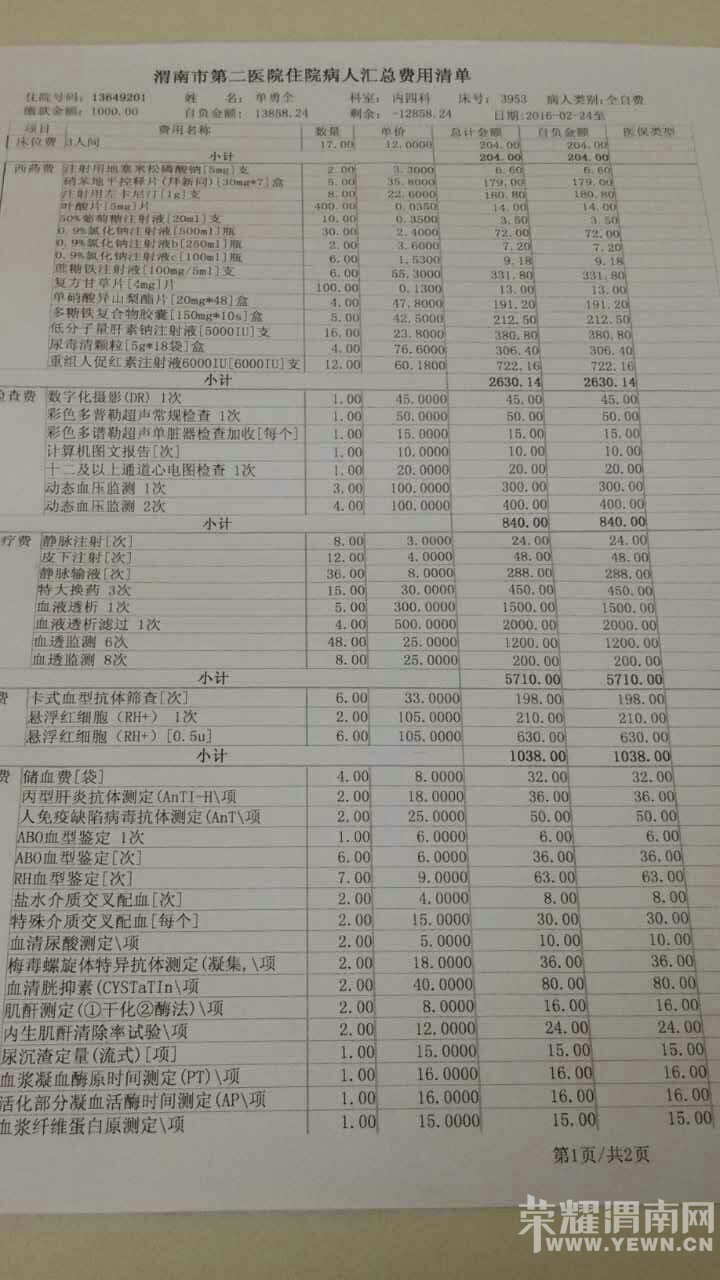 渭南市第二医院住院病人汇总费用清单
住院号码: 13649201 姓 名: 单勇全 科室: 内四科 床号: 3953 病人类别: 全自费
缴款金额: 1000.00 自负金额: 13858.24 剩余: -12858.24 日期:2016-02-24至
项目 费用名称 数量 单价 总计金额 自负金额 医保类型
床位费 3人间 17.00 12.0000 204.00 204.00
小计 204.00 204.00
西药费 注射用地塞米松磷酸钠[5mg]支 2.00 3.3000 6.60 6.60
硝苯地平控释片(拜新同)[30mg*7]盒 5.00 35.8000 179.00 179.00
注射用左卡尼汀[1g]支 8.00 22.6000 180.80 180.80
叶酸片[5mg]片 400.00 0.0350 14.00 14.00
50%葡萄糖注射液[20ml]支 10.00 0.3500 3.50 3.50
0.9%氯化钠注射液[500ml]瓶 30.00 2.4000 72.00 72.00
0.9%氯化钠注射液b[250ml]瓶 2.00 3.6000 7.20 7.20
0.9%氯化钠注射液c[100ml]瓶 6.00 1.5300 9.18 9.18
蔗糖铁注射液[100mg/5ml]支 6.00 55.3000 331.80 331.80
复方甘草片[4mg]片 100.00 0.1300 13.00 13.00
单硝酸异山梨酯片[20mg*48]盒 4.00 47.8000 191.20 191.20
多糖铁复合物胶囊[150mg*10s]盒 5.00 42.5000 212.50 212.50
低分子量肝素钠注射液[5000IU]支 16.00 23.8000 380.80 380.80
尿毒清颗粒[5g*18袋]盒 4.00 76.6000 306.40 306.40
重组人促红素注射液6000IU[6000IU]支 12.00 60.1800 722.16 722.16
小计 2630.14 2630.14
检查费 数字化摄影(DR) 1次 1.00 45.0000 45.00 45.00
彩色多普勒超声常规检查 1次 1.00 50.0000 50.00 50.00
彩色多谱勒超声单脏器检查加收[每个] 1.00 15.0000 15.00 15.00
计算机图文报告[次] 1.00 10.0000 10.00 10.00
十二及以上通道心电图检查 1次 1.00 20.0000 20.00 20.00
动态血压监测 1次 3.00 100.0000 300.00 300.00
动态血压监测 2次 4.00 100.0000 400.00 400.00
小计 840.00 840.00
疗费 静脉注射[次] 8.00 3.0000 24.00 24.00
皮下注射[次] 12.00 4.0000 48.00 48.00
静脉输液[次] 36.00 8.0000 288.00 288.00
特大换药 3次 15.00 30.0000 450.00 450.00
血液透析 1次 5.00 300.0000 1500.00 1500.00
血液透析滤过 1次 4.00 500.0000 2000.00 2000.00
血透监测 6次 48.00 25.0000 1200.00 1200.00
血透监测 8次 8.00 25.0000 200.00 200.00
小计 5710.00 5710.00
费 卡式血型抗体筛查[次] 6.00 33.0000 198.00 198.00
悬浮红细胞 (RH+) 1次 2.00 105.0000 210.00 210.00
悬浮红细胞 (RH+)[0.5u] 6.00 105.0000 630.00 630.00
小计 1038.00 1038.00
费 储血费[袋] 4.00 8.0000 32.00 32.00
丙型肝炎抗体测定(AnTI-H\项 2.00 18.0000 36.00 36.00
人免疫缺陷病毒抗体测定(AnT\项 2.00 25.0000 50.00 50.00
ABO血型鉴定 1次 1.00 6.0000 6.00 6.00
ABO血型鉴定[次] 6.00 6.0000 36.00 36.00
RH血型鉴定[次] 7.00 9.0000 63.00 63.00
盐水介质交叉配血[次] 2.00 4.0000 8.00 8.00
特殊介质交叉配血[每个] 2.00 15.0000 30.00 30.00
血清尿酸测定\项 2.00 5.0000 10.00 10.00
梅毒螺旋体特异抗体测定(凝集,\项 2.00 18.0000 36.00 36.00
血清胱抑素(CYSTaTIn\项 2.00 40.0000 80.00 80.00
肌酐测定(①干化②酶法)\项 2.00 8.0000 16.00 16.00
内生肌酐清除率试验\项 2.00 12.0000 24.00 24.00
尿沉渣定量(流式)[项] 1.00 15.0000 15.00 15.00
血浆凝血酶原时间测定(PT)\项 1.00 16.0000 16.00 16.00
活化部分凝血活酶时间测定(AP\项 1.00 16.0000 16.00 16.00
血浆纤维蛋白原测定\项 1.00 15.0000 15.00 15.00
第1页/共2页
荣耀渭南网
WWW.YEWN.CN